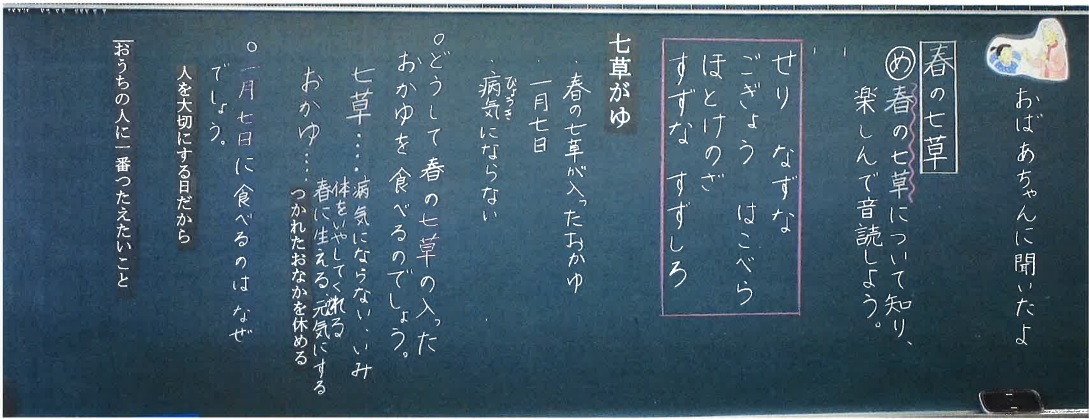 おばあちゃんに聞いたよ
春の七草
め 春の七草について知り、
楽しんで音読しよう。
せり なずな
ごぎょう はこべら
ほとけのざ
すずな すずしろ
七草がゆ
・春の七草が入ったおかゆ
・一月七日
・病気にならない
びょうき
○どうして春の七草の入った
おかゆを食べるのでしょう。
七草…・病気にならない、いみ
体をいやしてくれる
春に生える、元気にする
おかゆ…つかれたおなかを休める
○一月七日に食べるのは なぜ
でしょう。
人を大切にする日だから
おうちの人に一番つたえたいこと